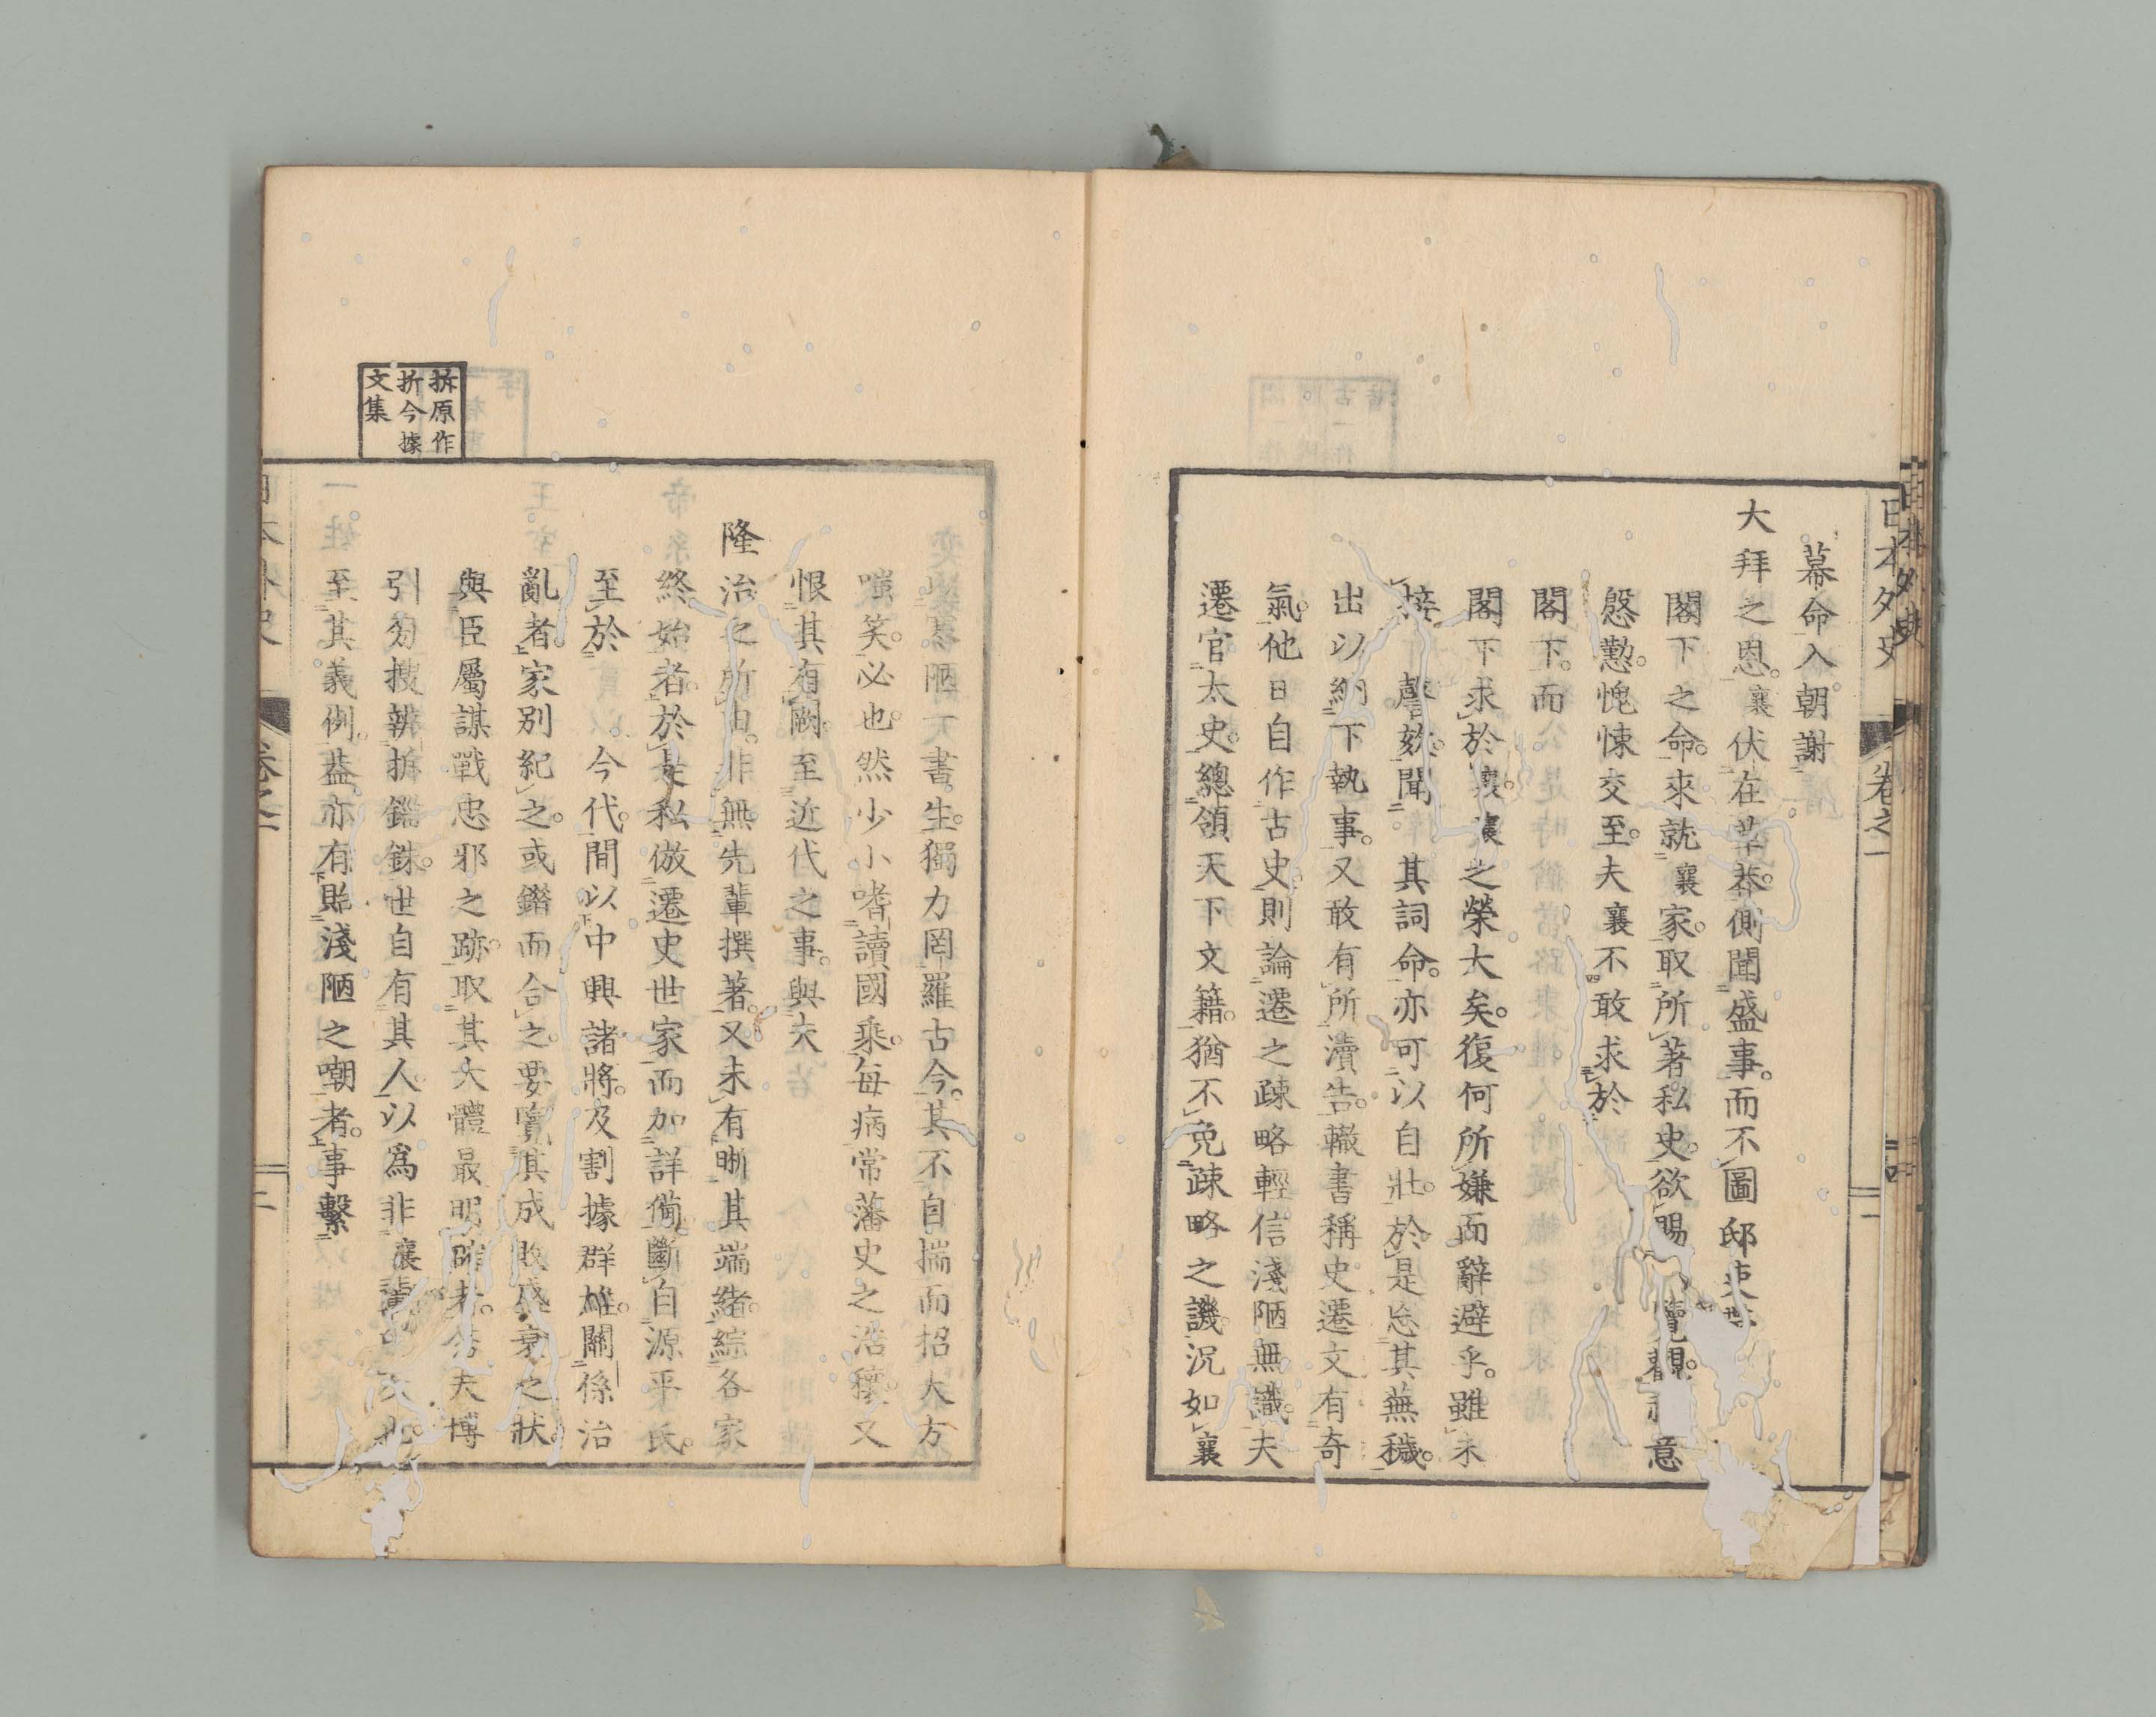 日本外史
卷之一
一
幕命入朝謝
大拜之恩。襄伏在草莽。側聞盛事。而不圖邸吏
閣下之命。來就襄家。取所著私史。欲賜覽觀。意
慇懃。愧悚交至。夫襄不敢求於
閣下。而
閣下求於襄。襄之榮大矣。復何所嫌而辭避乎。雖未
接謦欬。聞其詞命。亦可以自壯。於是忘其蕪穢。
出以納下執事。又敢有所瀆告。轍書稱史遷文有奇
氣。他日自作古史。則論遷之疎略輕信淺陋無識。夫
遷官太史。總領天下文籍。猶不免疎略之譏。況如襄
陋下書生。獨力罔羅古今。其不自揣而招大方
嗤笑。必也。然少小嗜讀國乘。每病常藩史之浩穰。又
恨其有闕。至近代之事。與夫
隆治之所由。非無先輩撰著。又未有晰其端緒。綜各家
終始者。於是私倣遷史世家。而加詳備。斷自源平氏。
至於今代。間以中興諸將。及割據群雄。關係治
亂者。家別紀之。或鑑而合之。要覽其成敗盛衰之狀。
與臣屬謀戰忠邪之跡。取其大體最明確者。若夫博
引匆搜辨拆錙銖。世自有其人。以爲非襄輩
至其義例。益亦有貽淺陋之嘲者。事繫
拆原作
折今據
文集
日本外史
卷之一
二